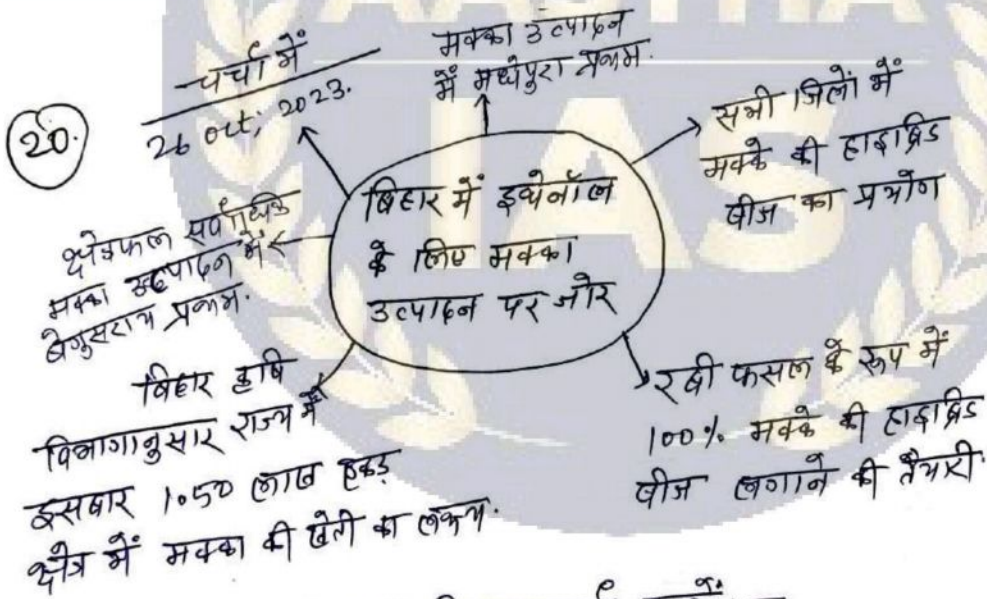 20.
चर्चा में
26 oct, 2023.
मक्का उत्पादन
में मधेपुरा प्रथम.
सभी जिलों में
मक्के की हाइब्रिड
बीज का प्रयोग
बिहार में इथेनॉल
के लिए मक्का
उत्पादन पर जोर
क्षेत्रफल सर्वाधिक
मक्का उत्पादन में
बेगुसराय प्रथम.
बिहार कृषि
विभागानुसार राज्य में
इसबार 1.50 लाख
क्षेत्र में मक्का की खेती का लक्ष्य.
रबी फसल के रूप में
100% मक्के की हाइब्रिड
बीज लगाने की तैयारी
IAS